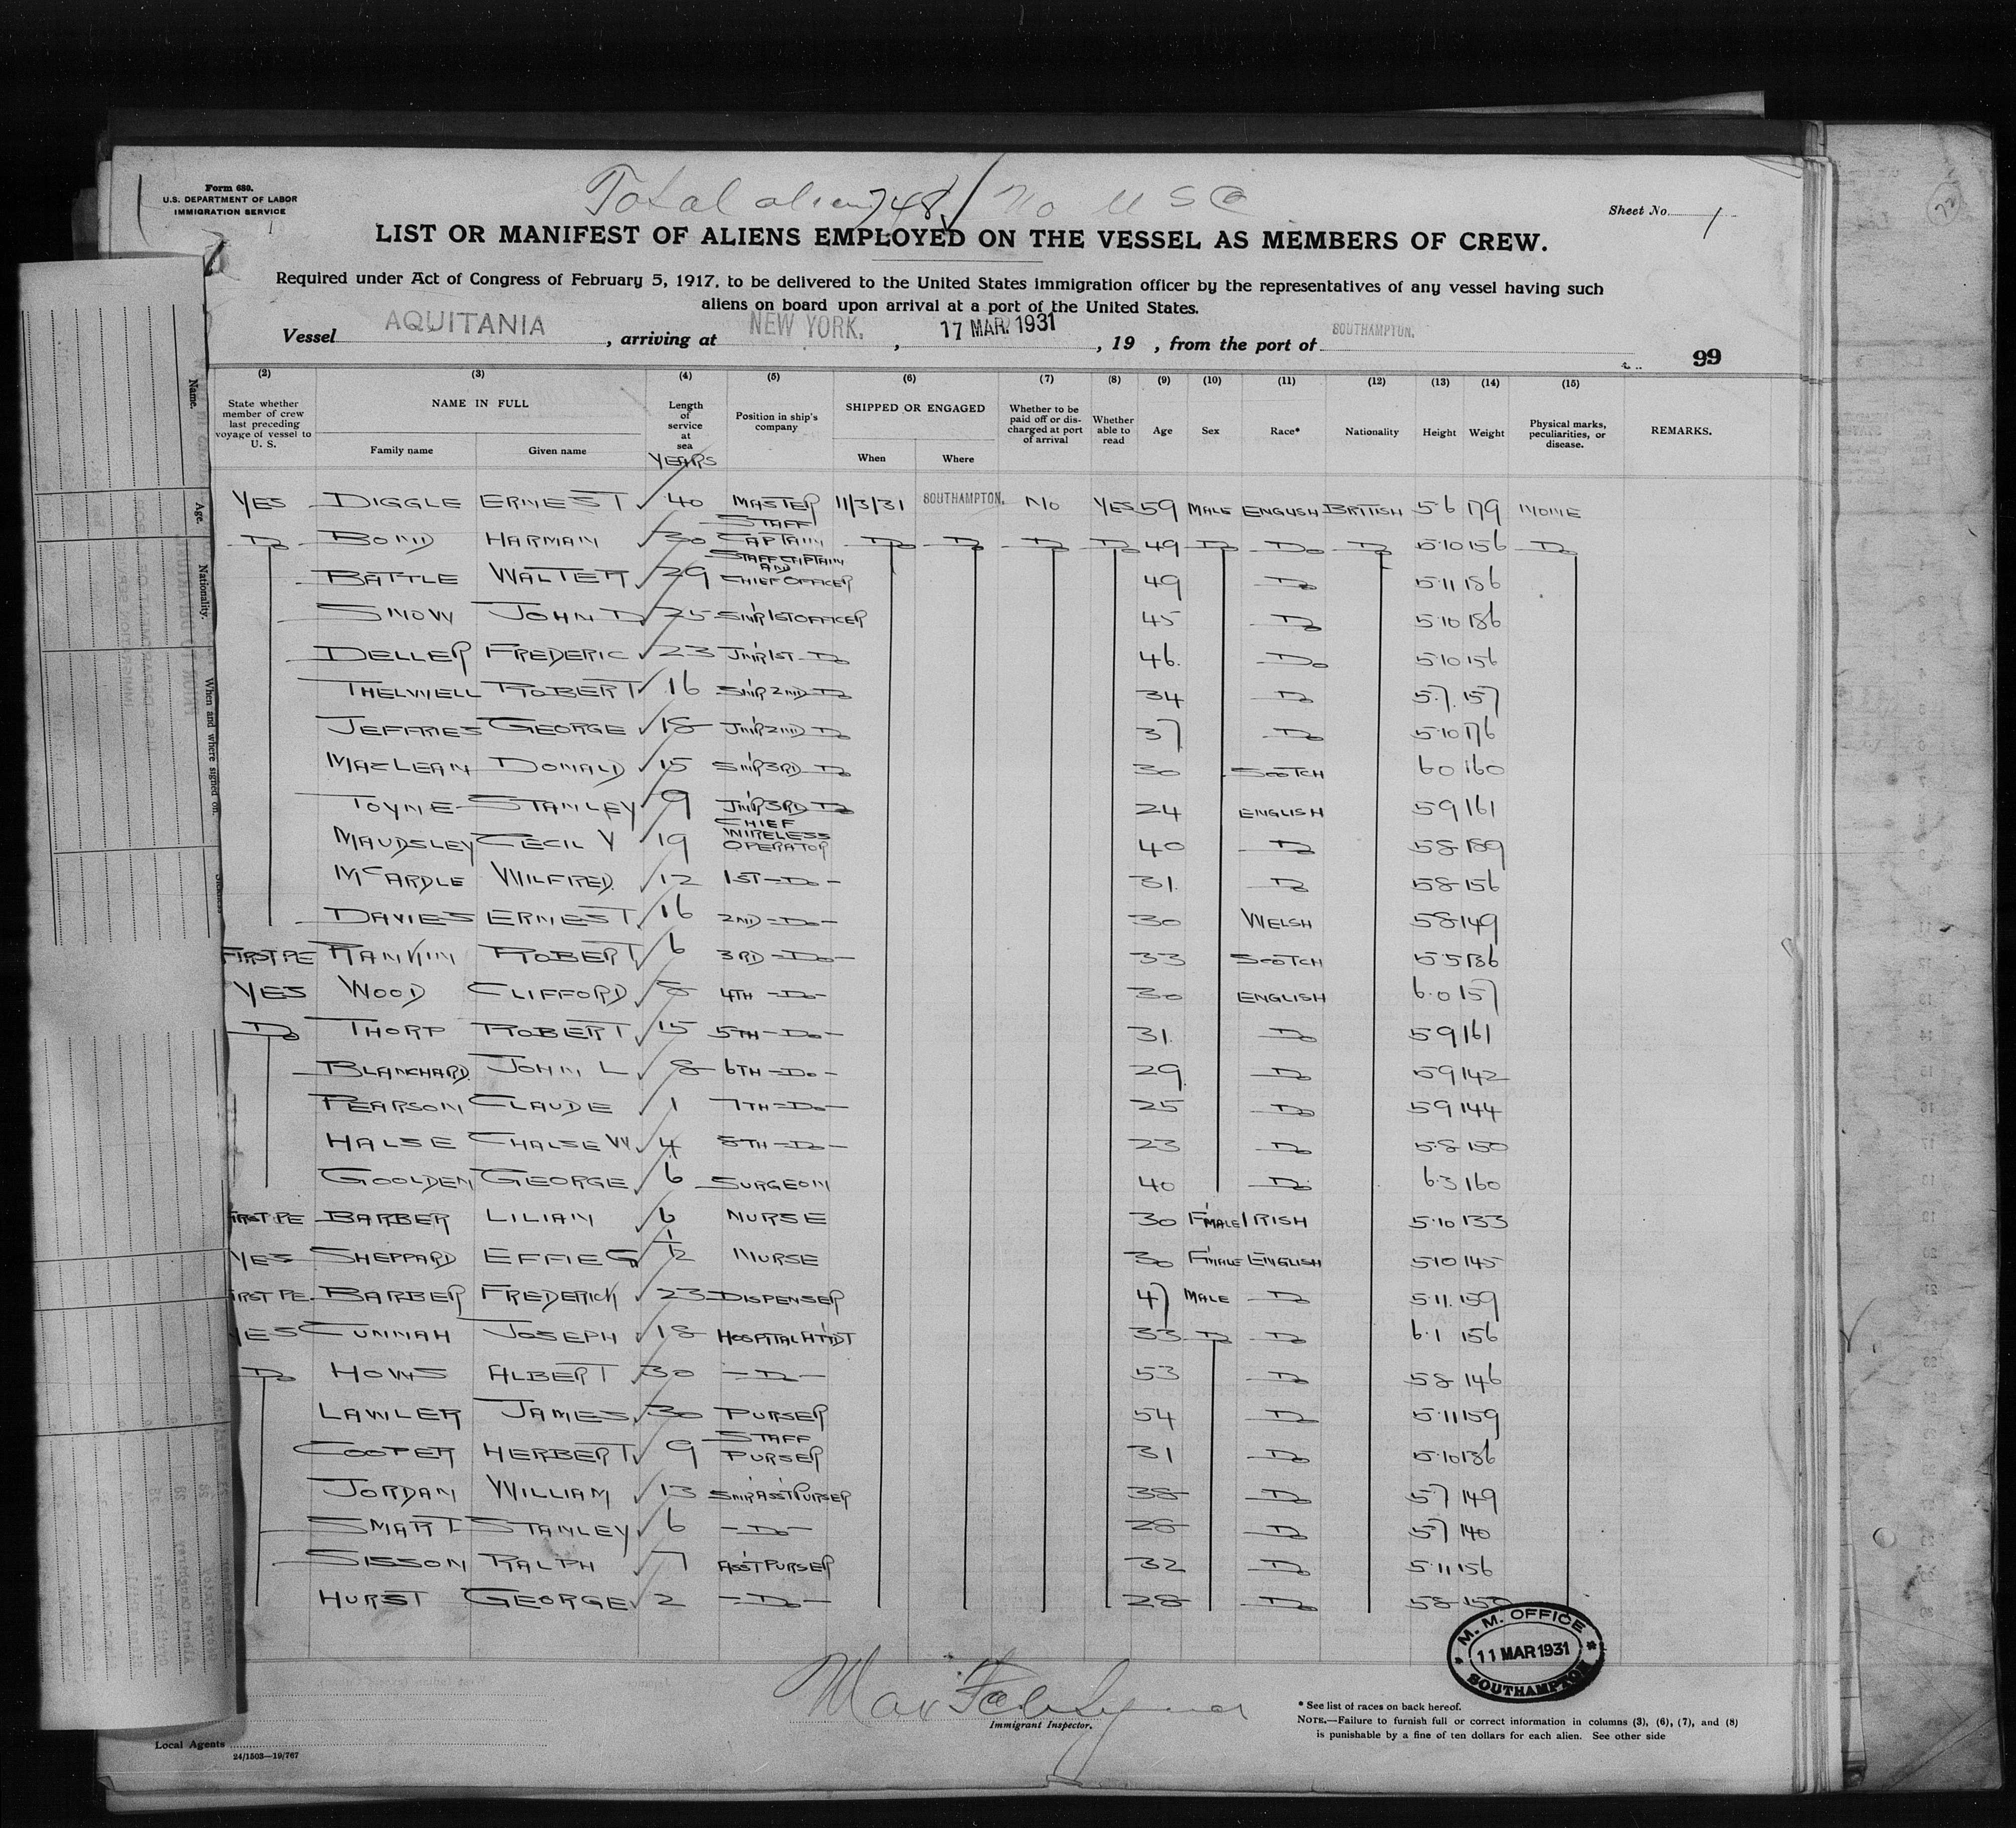 Form 680.
U.S. DEPARTMENT OF LABOR
IMMIGRATION SERVICE
Total aliens 748 / No USC
Sheet No. 1
LIST OR MANIFEST OF ALIENS EMPLOYED ON THE VESSEL AS MEMBERS OF CREW.
Required under Act of Congress of February 5, 1917, to be delivered to the United States immigration officer by the representatives of any vessel having such
aliens on board upon arrival at a port of the United States.
Vessel AQUITANIA, arriving at NEW YORK, 17 MAR. 1931, 19 , from the port of SOUTHAMPTON.
99
(2) (3) (4) (5) (6) (7) (8) (9) (10) (11) (12) (13) (14) (15)
State whether member of crew last preceding voyage of vessel to U. S. NAME IN FULL Family name Given name Length of service at sea YEARS Position in ship's company SHIPPED OR ENGAGED When Where Whether to be paid off or discharged at port of arrival Whether able to read Age Sex Race* Nationality Height Weight Physical marks, peculiarities, or disease. REMARKS.
YES DIGGLE ERNEST 40 MASTER 11/3/31 SOUTHAMPTON. NO YES 59 MALE ENGLISH BRITISH 5 6 179 NONE
Do BOND HARMAN 30 STAFF CAPTAIN Do Do Do Do 49 Do Do Do 5·10 156 Do
BATTLE WALTER 29 STAFF CAPTAIN AND CHIEF OFFICER 49 Do 5·11 186
SNOW JOHN D 25 SNR 1ST OFFICER 45 Do 5·10 186
DELLER FREDERIC 23 JNR 1ST Do 46. Do 5·10 156
THELWELL ROBERT 16 SNR 2ND Do 34 Do 5·7. 157
JEFFRIES GEORGE 18 JNR 2ND Do 37 Do 5·10 176
MACLEAN DONALD 15 SNR 3RD Do 30 SCOTCH 6 0 160
TOYNE STANLEY 9 JNR 3RD Do 24 ENGLISH 5 9 161
MAUDSLEY CECIL V 19 CHIEF WIRELESS OPERATOR 40 Do 5·8 189
McARDLE WILFRED. 12 1ST - Do - 31. Do 5·8 156
DAVIES ERNEST 16 2ND - Do - 30 WELSH 5 8 149
FIRST PE RANKIN ROBERT 6 3RD - Do - 33 SCOTCH 5·5 136
YES WOOD CLIFFORD 8 4TH - Do - 30 ENGLISH 6·0 157
Do THORP ROBERT 15 5TH - Do - 31. Do 5 9 161
BLANCHARD. JOHN L 8 6TH - Do - 29. Do 5 9 142
PEARSON CLAUDE 1 7TH - Do - 25 Do 5 9 144
HALSE CHALSE W 4 8TH - Do - 23 Do 5·8 150
GOOLDEN GEORGE 6 SURGEON 40 Do 6·3 160
FIRST PE BARBER LILIAN 6 NURSE 30 F'MALE IRISH 5·10 133
YES SHEPPARD EFFIE G 1/12 NURSE 30 F'MALE ENGLISH 5·10 145
FIRST PE. BARBER FREDERICK 23 DISPENSER 47 MALE Do 5·11. 159
YES CUNNAH JOSEPH 18 HOSPITAL ATT'DT 33 Do Do 6·1 156
Do HOWS ALBERT 30 - Do - 53 Do 5·8 146
LAWLER JAMES 30 PURSER 54 Do 5·11 159
COOPER HERBERT 9 STAFF PURSER 31 Do 5·10 136
JORDAN WILLIAM 13 SNR ASST PURSER 38 Do 5 7 149
SMART STANLEY 6 - Do - 28 Do 5·7 140
SISSON RALPH 7 ASST PURSER 32 Do 5·11 156
HURST GEORGE 2 - Do - 28 Do 5·8 150
M. M. OFFICE
11 MAR 1931
SOUTHAMPTON
Immigrant Inspector.
* See list of races on back hereof.
NOTE.—Failure to furnish full or correct information in columns (3), (6), (7), and (8)
is punishable by a fine of ten dollars for each alien. See other side
Local Agents
24/1503—19/767
Name.
Age.
Nationality.
When and where signed on.